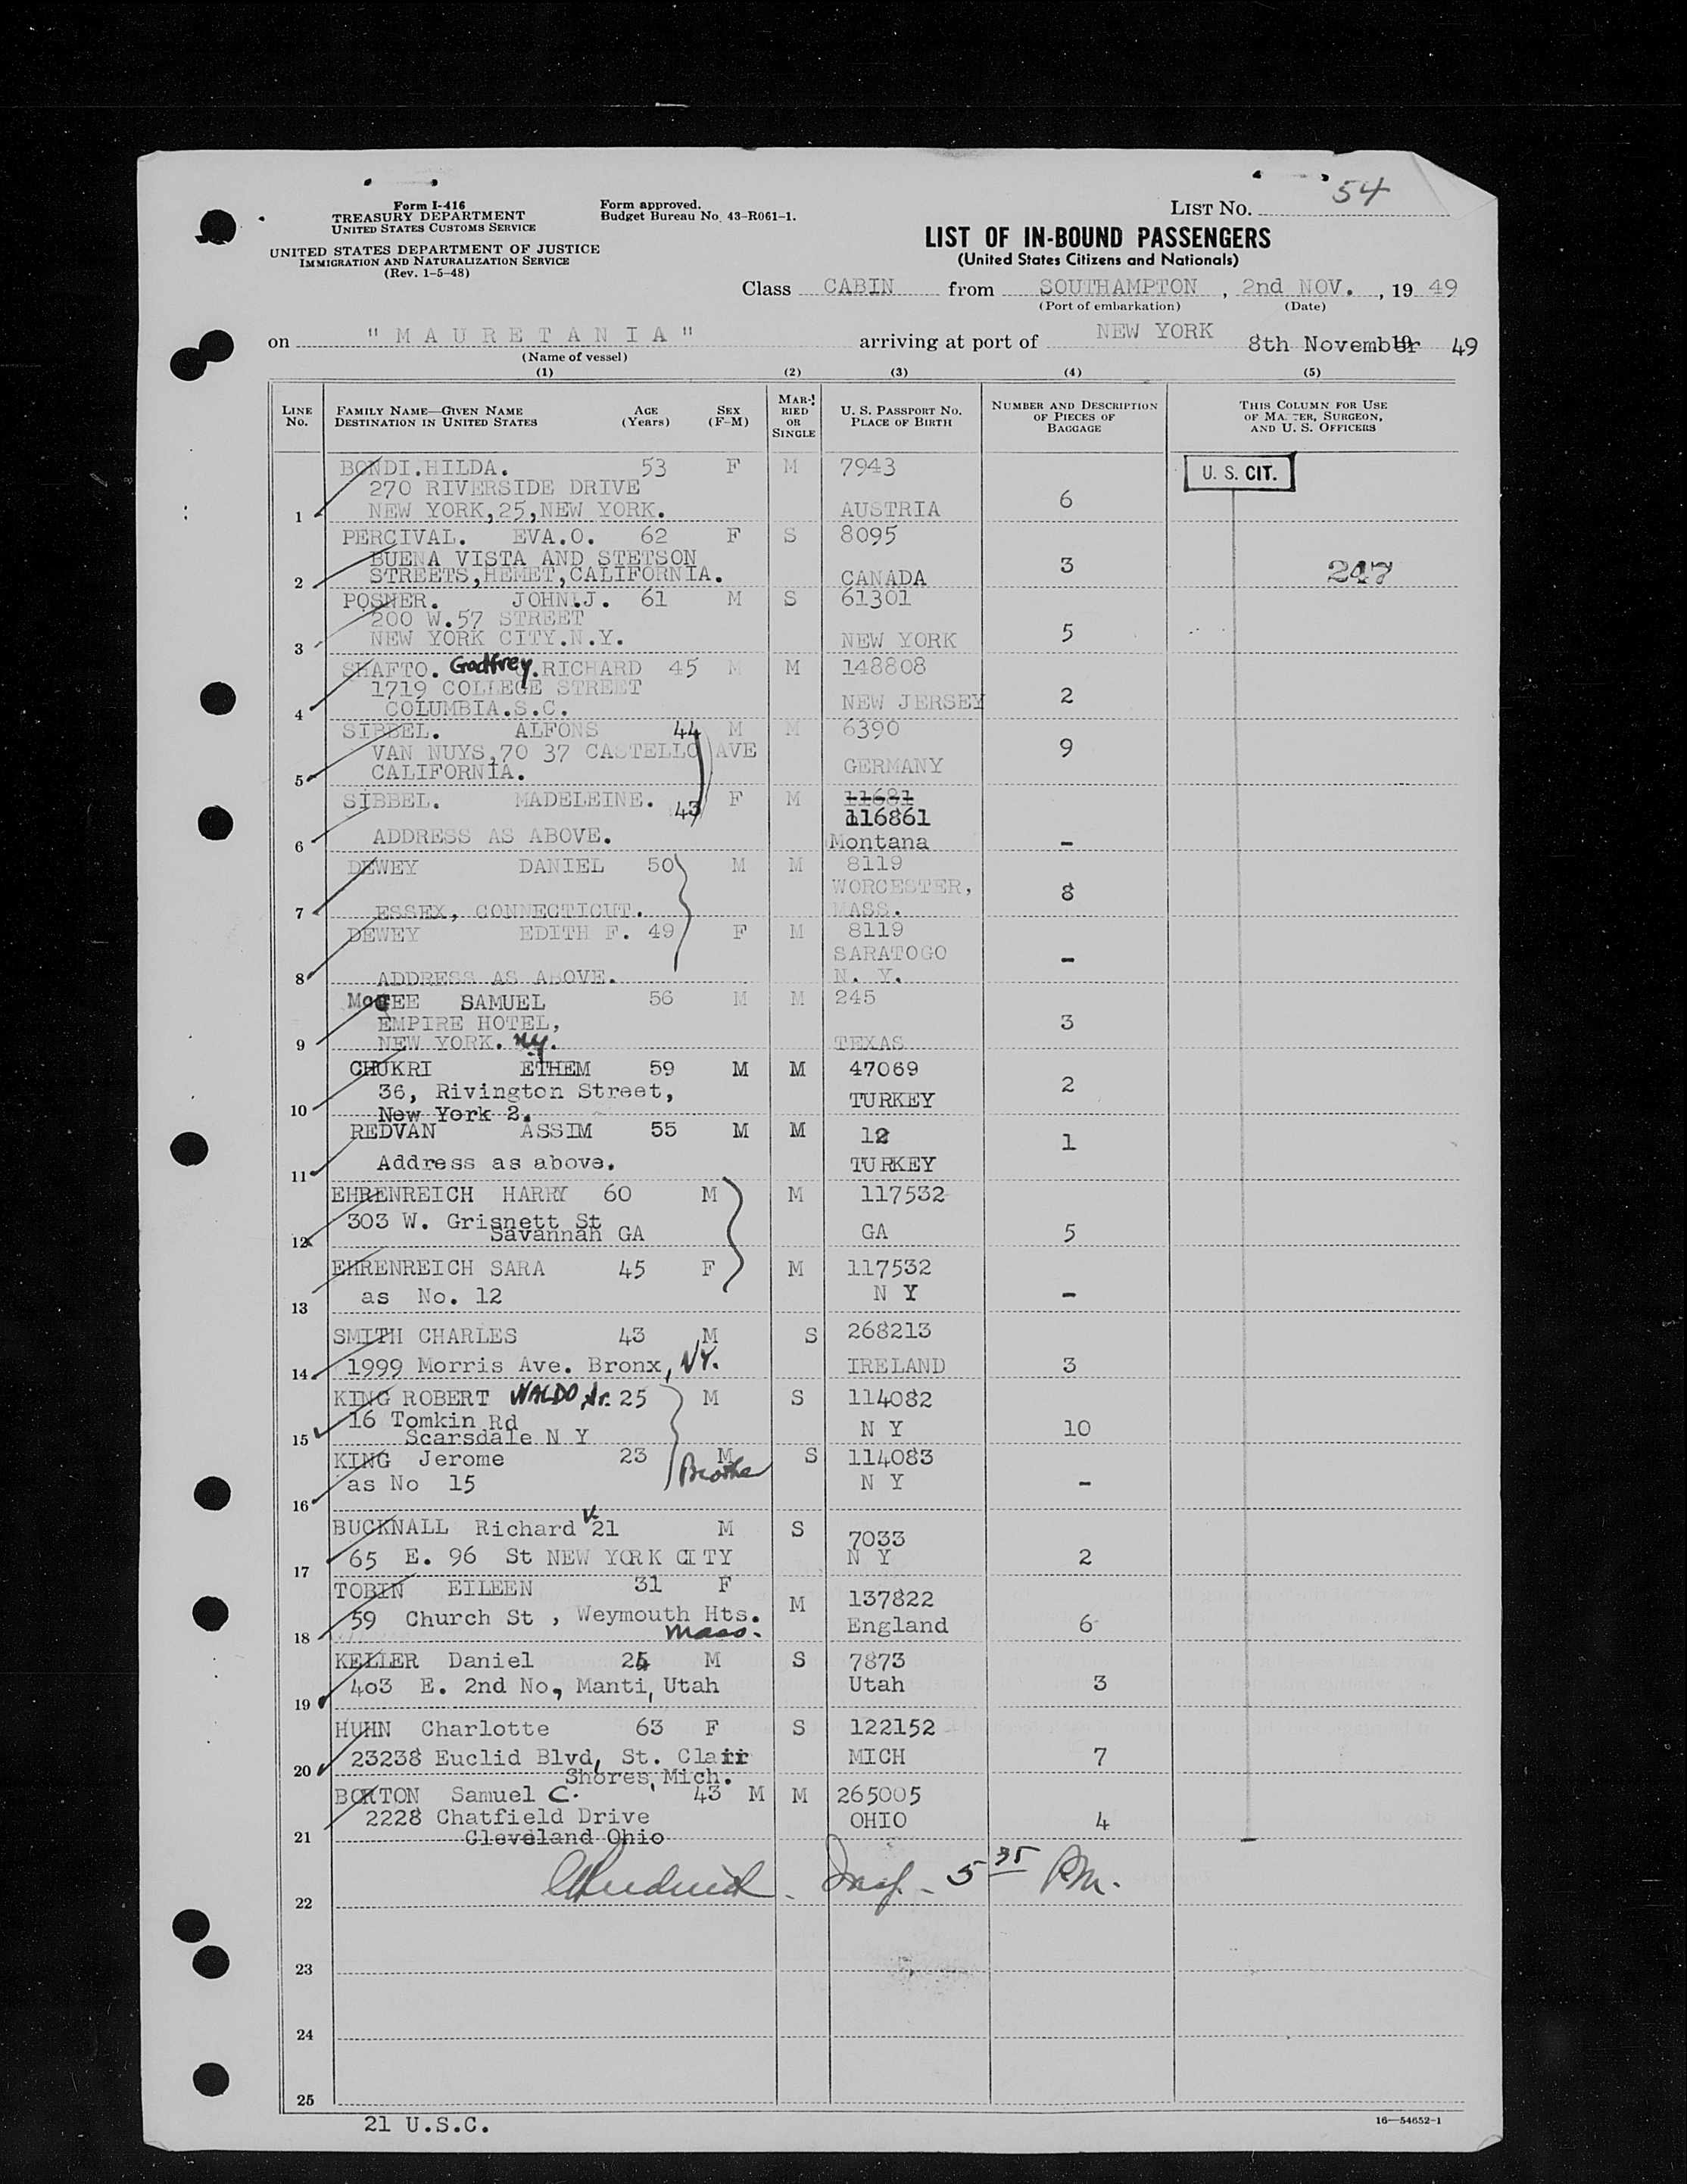 54
Form I-416
TREASURY DEPARTMENT
UNITED STATES CUSTOMS SERVICE
UNITED STATES DEPARTMENT OF JUSTICE
IMMIGRATION AND NATURALIZATION SERVICE
(Rev. 1-5-48)
Form approved.
Budget Bureau No. 43-R061-1.
LIST NO.
LIST OF IN-BOUND PASSENGERS
(United States Citizens and Nationals)
Class CABIN from SOUTHAMPTON, 2nd NOV., 1949
(Port of embarkation) (Date)
on "MAURETANIA" arriving at port of NEW YORK 8th November 19 49
(Name of vessel)
(1) (2) (3) (4) (5)
LINE No.
FAMILY NAME—GIVEN NAME
DESTINATION IN UNITED STATES
AGE (Years)
SEX (F-M)
MARRIED OR SINGLE
U. S. PASSPORT NO.
PLACE OF BIRTH
NUMBER AND DESCRIPTION OF PIECES OF BAGGAGE
THIS COLUMN FOR USE OF MASTER, SURGEON, AND U. S. OFFICERS
BONDI.HILDA. 53 F M 7943 U. S. CIT.
270 RIVERSIDE DRIVE 6
1 NEW YORK,25,NEW YORK. AUSTRIA
PERCIVAL. EVA.O. 62 F S 8095
BUENA VISTA AND STETSON 3 247
2 STREETS,HEMET,CALIFORNIA. CANADA
POSNER. JOHN.J. 61 M S 61301
200 W.57 STREET 5
3 NEW YORK CITY.N.Y. NEW YORK
SHAFTO. Godfrey.RICHARD 45 M M 148808
1719 COLLEGE STREET 2
4 COLUMBIA.S.C. NEW JERSEY
SIBBEL. ALFONS 44 M M 6390
VAN NUYS,70 37 CASTELLO AVE 9
5 CALIFORNIA. GERMANY
SIBBEL. MADELEINE. 43 F M 11681
116861
6 ADDRESS AS ABOVE. Montana -
DEWEY DANIEL 50 M M 8119
WORCESTER, 8
7 ESSEX, CONNECTICUT. MASS.
DEWEY EDITH F. 49 F M 8119
SARATOGO -
8 ADDRESS AS ABOVE. N. Y.
McGEE SAMUEL 56 M M 245
EMPIRE HOTEL, 3
9 NEW YORK. N.Y. TEXAS
CHUKRI ETHEM 59 M M 47069
36, Rivington Street, 2
10 New York 2. TURKEY
REDVAN ASSIM 55 M M 12 1
11 Address as above. TURKEY
EHRENREICH HARRY 60 M M 117532
303 W. Grisnett St
12 Savannah GA GA 5
EHRENREICH SARA 45 F M 117532
13 as No. 12 N Y -
SMITH CHARLES 43 M S 268213
14 1999 Morris Ave. Bronx, NY. IRELAND 3
KING ROBERT WALDO, Jr. 25 M S 114082
16 Tomkin Rd
15 Scarsdale N Y N Y 10
KING Jerome 23 M S 114083
Brother
16 as No 15 N Y -
BUCKNALL Richard V. 21 M S 7033
17 65 E. 96 St NEW YORK CITY N Y 2
TOBIN EILEEN 31 F M 137822
59 Church St , Weymouth Hts. England 6
18 Mass.
KELLER Daniel 24 M S 7873
19 403 E. 2nd No, Manti, Utah Utah 3
HUHN Charlotte 63 F S 122152
20 23238 Euclid Blvd, St. Clair MICH 7
Shores, Mich.
BORTON Samuel C. 43 M M 265005
2228 Chatfield Drive OHIO 4
21 Cleveland Ohio
Insp. - 5 35 P.M.
22
23
24
25
21 U.S.C.
16—54652-1